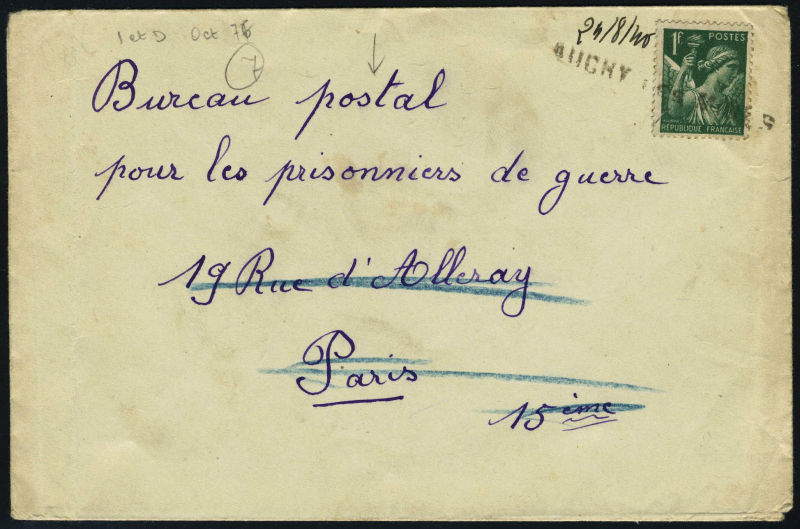 1 et D Oct 76
7
24/8/40
1F POSTES
AUCHY
RÉPUBLIQUE FRANÇAISE
Bureau postal
pour les prisonniers de guerre
19 Rue d'Alleray
Paris
15ème